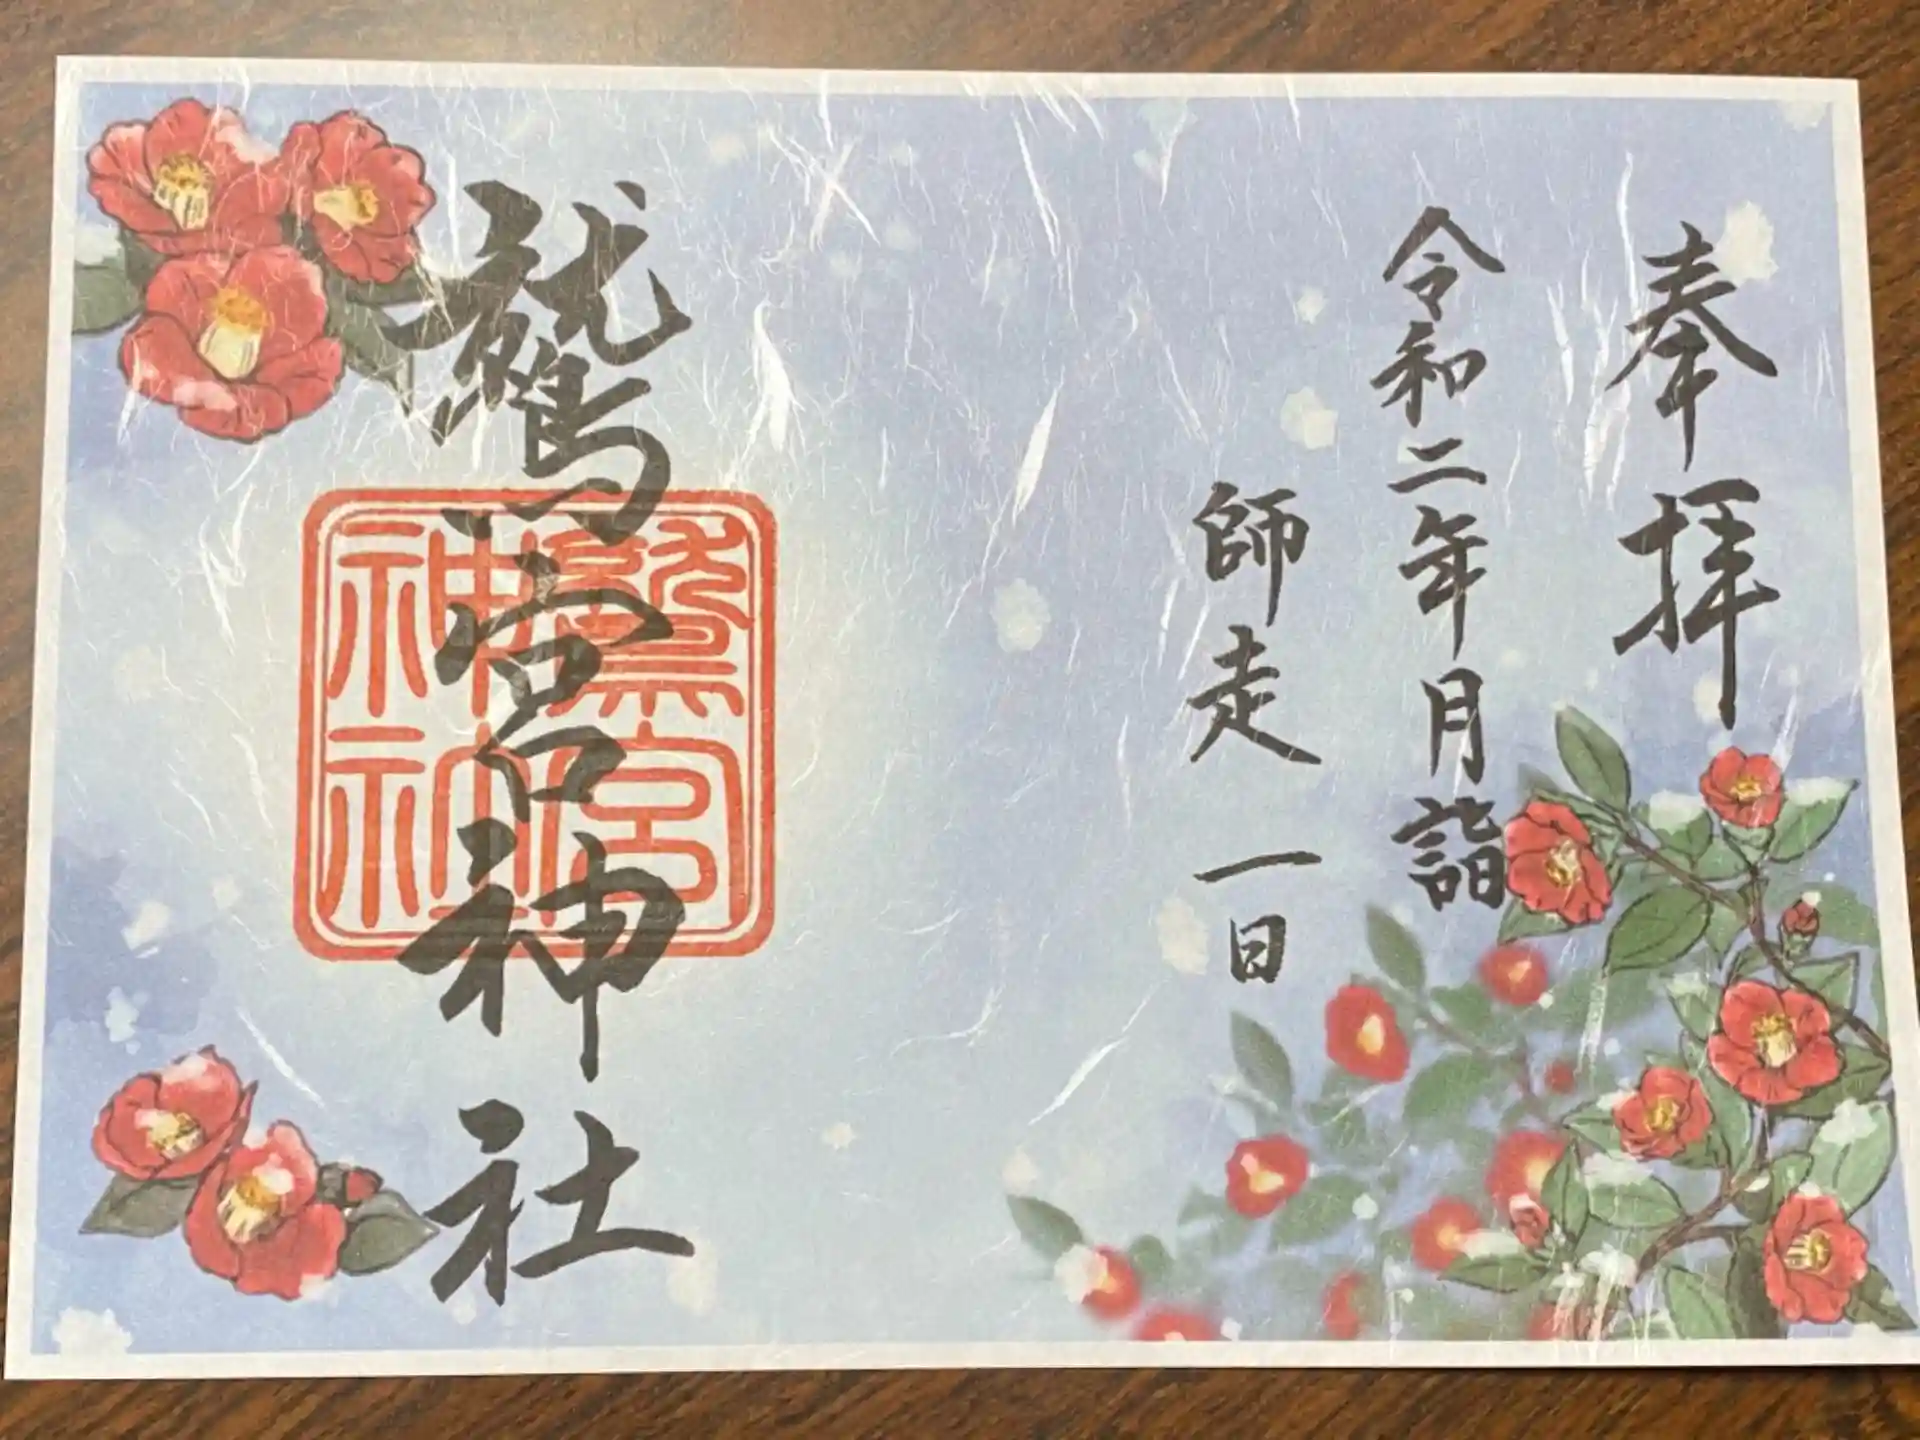 奉拝
令和二年月詣
師走 一日
鷲宮神社
鷲宮神社